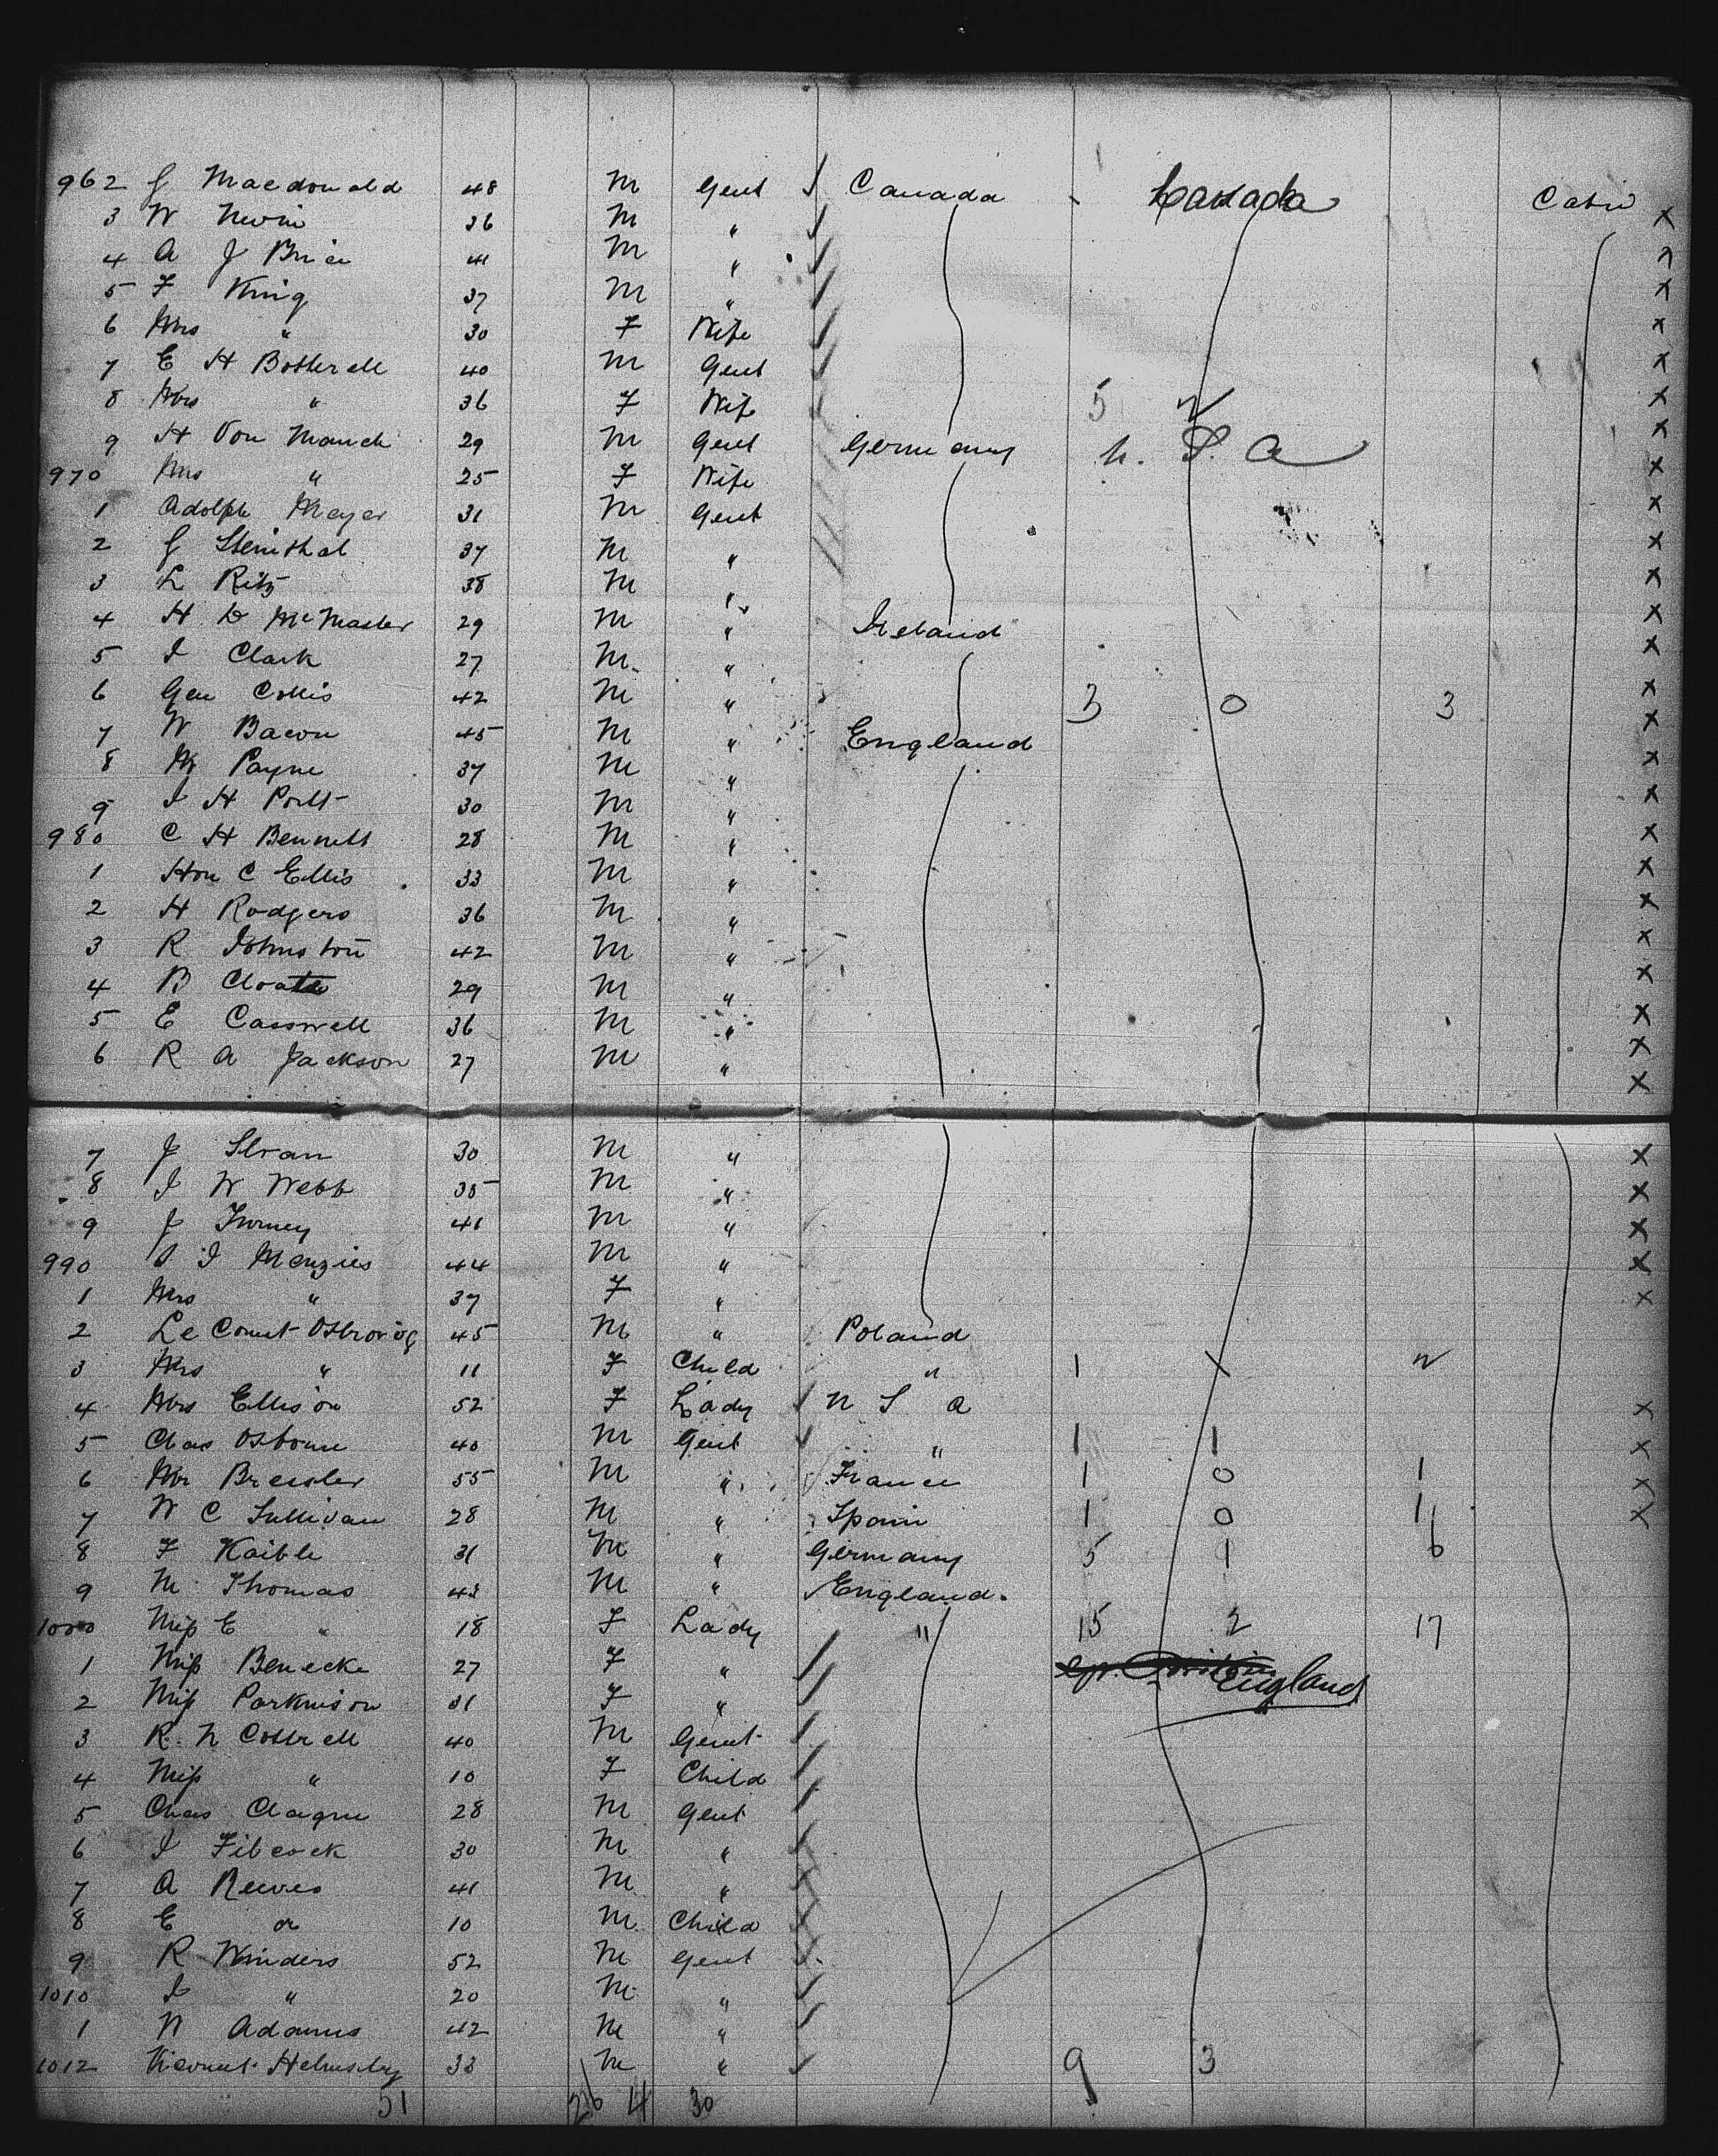 962 J Macdonald 48 M Gent Canada Canada Cabin
3 W 36 M "
4 A J Brice 41 M "
5 F King 37 M "
6 Mrs " 30 F Wife
7 E H Botterell 40 M Gent
8 Mrs " 36 F Wife 5 2
9 H Von 29 M Gent Germany U. S. A
970 Mrs " 25 F Wife
1 Adolph Meyer 31 M Gent
2 J Steinthal 37 M "
3 L Ritz 38 M "
4 H D McMaster 29 M " Ireland
5 J Clark 27 M "
6 Gen Collis 42 M " 3 0 3
7 W Bacon 45 M " England
8 W Payne 37 M "
9 J H 30 M "
980 C H Bennett 28 M "
1 Hon C Ellis 33 M "
2 H Rodgers 36 M "
3 R Johnston 42 M "
4 B 29 M "
5 E Casswell 36 M "
6 R A Jackson 27 M "
7 J 30 M "
8 J W Webb 35 M "
9 J 41 M "
990 S J Menzies 44 M "
1 Mrs " 37 F "
2 Le Comte 45 M " Poland
3 Mrs " 11 F Child " 1 1 2
4 Mrs Ellison 52 F Lady U S a
5 Chas Osborne 40 M Gent " 1 1
6 Mr 55 M " France 1 0 1
7 W C Sullivan 28 M " Spain 1 0 1
8 F Kaible 31 M " Germany 5 1 6
9 M Thomas 43 M " England.
1000 Miss E " 18 F Lady " 15 2 17
1 Miss Benecke 27 F " England
2 Miss Parkinson 31 F "
3 R. N Cottrell 40 M Gent
4 Miss " 10 F Child
5 Chas Clague 28 M Gent
6 J 30 M "
7 A Reeves 41 M "
8 E do 10 M Child
9 R Winders 52 M Gent
1010 J " 20 M "
1 N Adams 42 M "
1012 Viscount Helmsley 33 M " 9 3
51 26 4 30